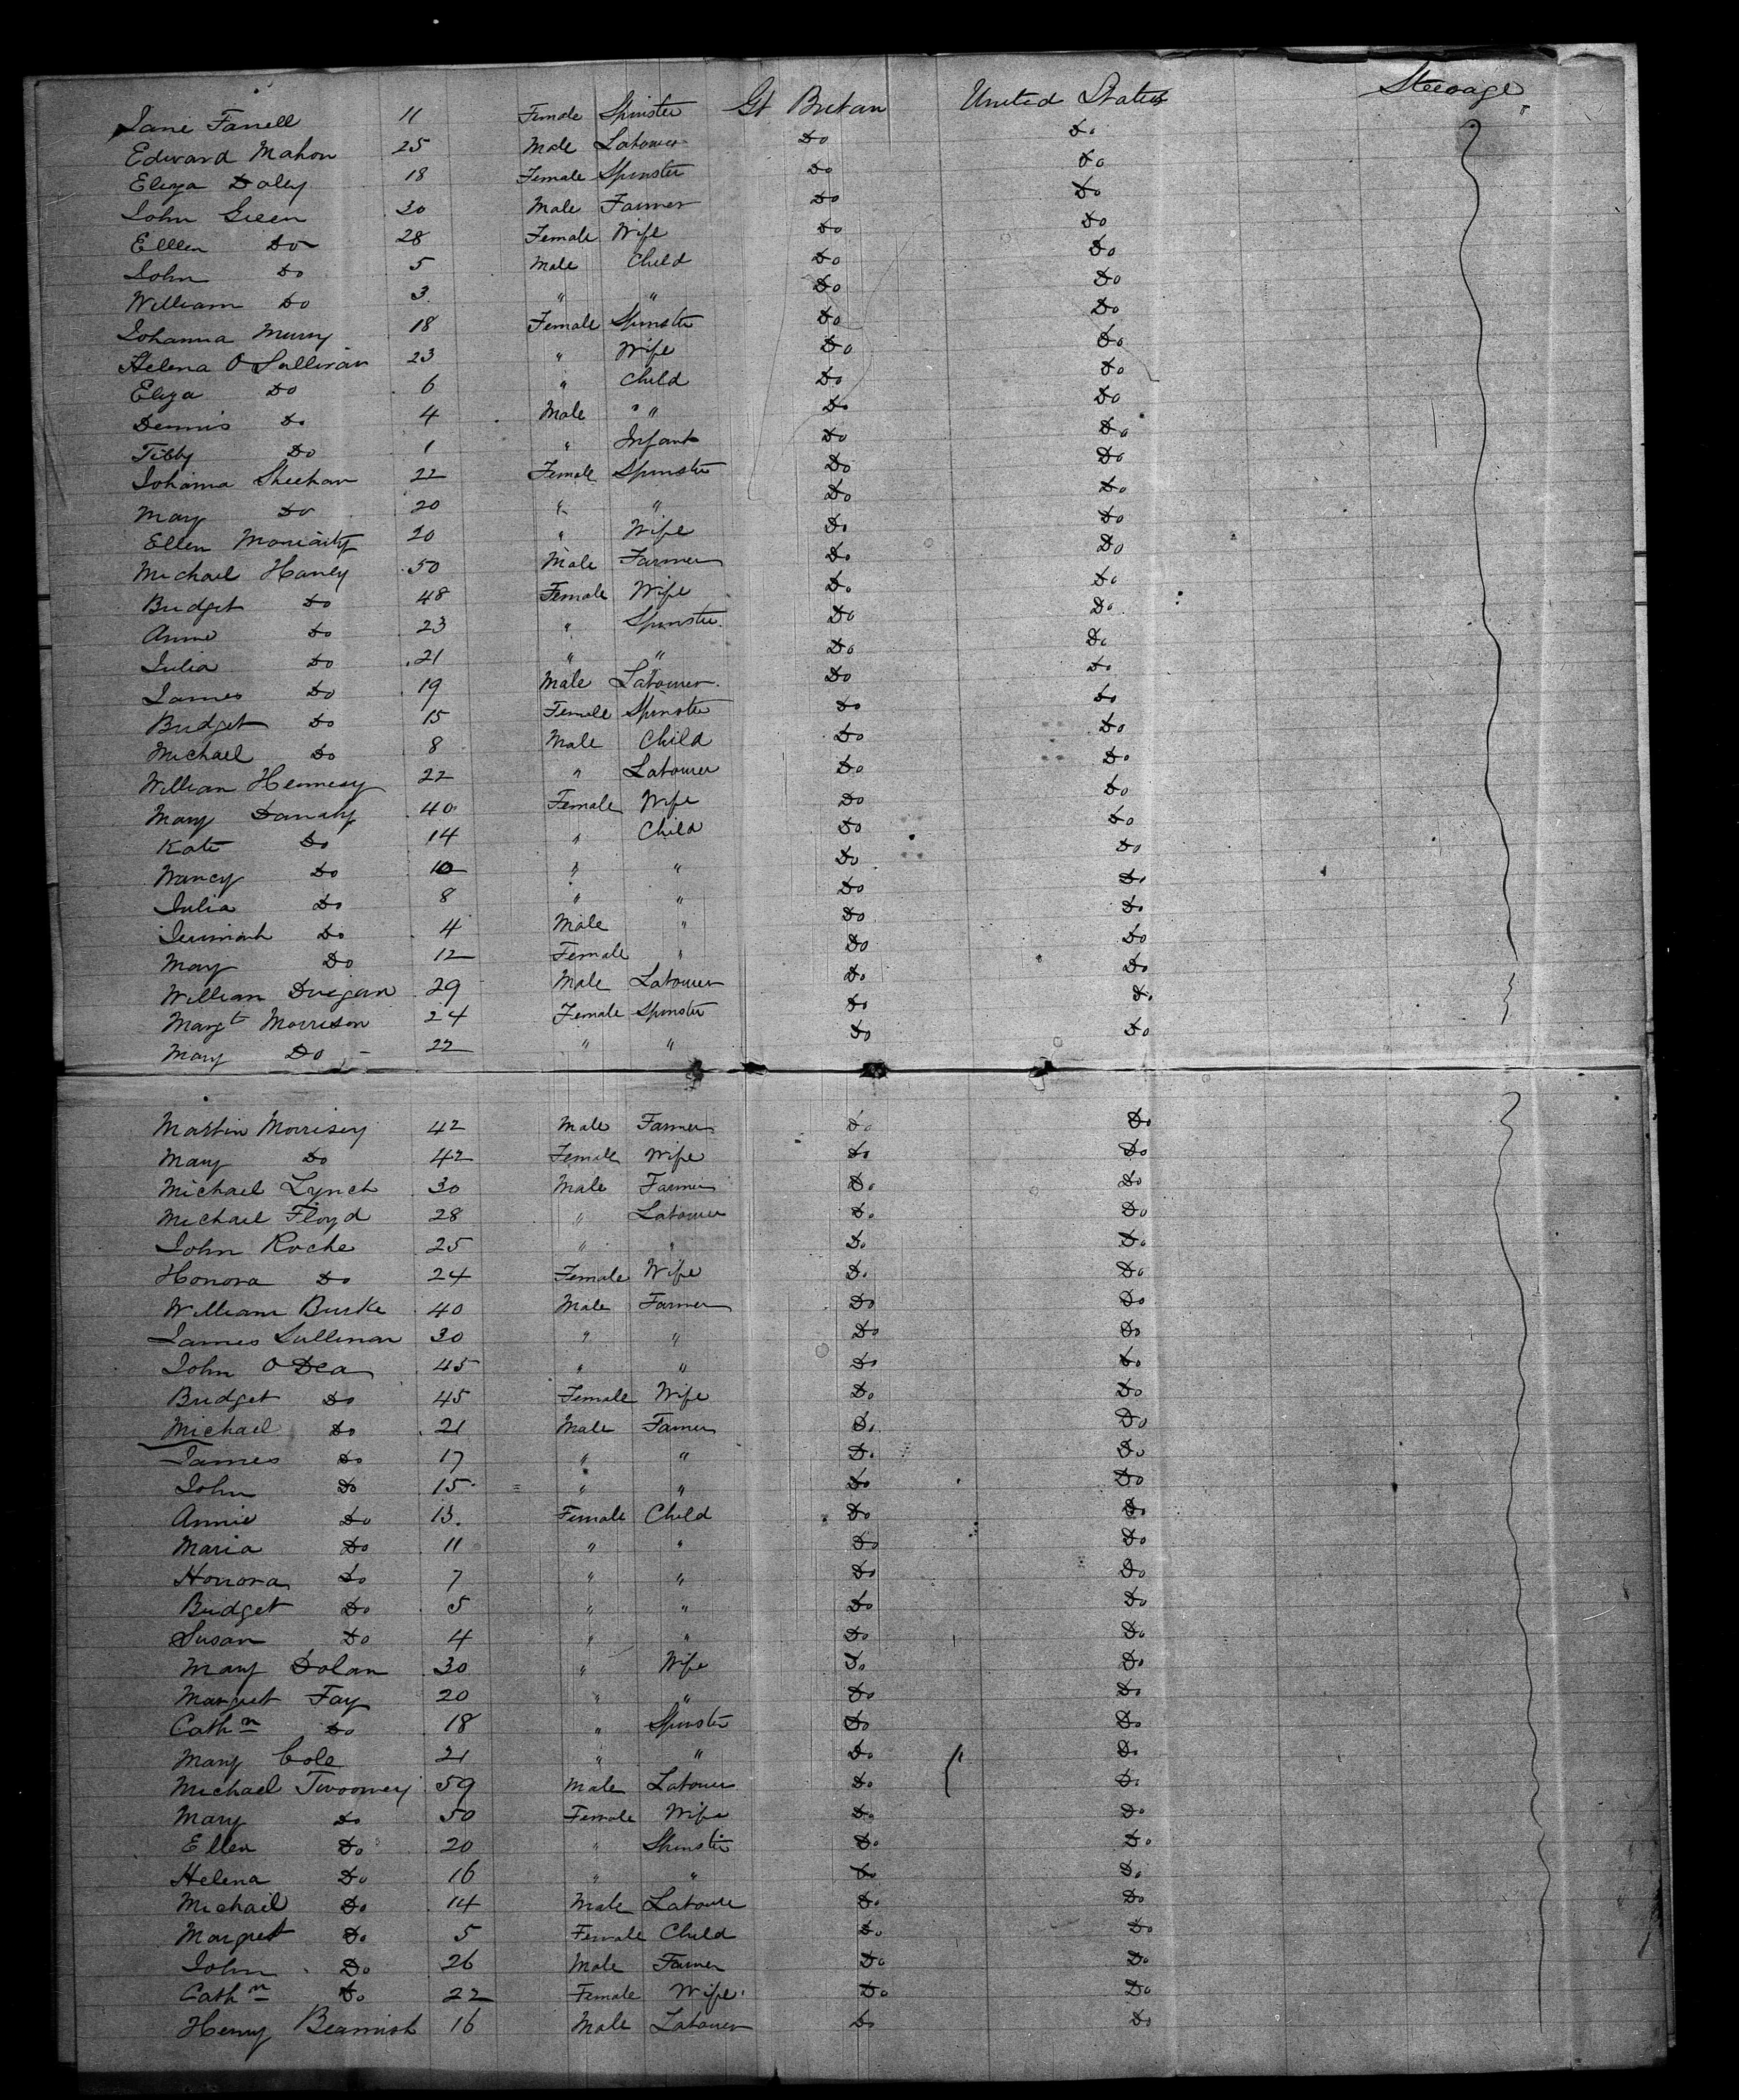 Jane Farrell 11 Female Spinster Gt Britan United States Steerage
Edward Mahon 25 Male Labourer Do Do "
Eliza Daley 18 Female Spinster Do Do
John Green 30 Male Farmer Do Do
Elllen Do 28 Female Wife Do Do
John Do 5 Male Child Do Do
William Do 3 " " Do Do
Johanna Murry 18 Female Spinster Do Do
Helena O Sullivan 23 " Wife Do Do
Eliza Do 6 " Child Do Do
Dennis Do 4 Male " " Do Do
Tibby Do 1 " Infant Do Do
Johanna Sheehan 22 Female Spinster Do Do
Mary Do 20 " " Do Do
Ellen Moriarity 20 " Wife Do Do
Michael Hanly 50 Male Farmer Do Do
Bridget Do 48 Female Wife Do Do
Anne Do 23 " Spinster Do Do
Julia Do 21 " " Do Do
James Do 19 Male Labourer Do Do
Bridget Do 15 Female Spinster Do Do
Michael Do 8 Male Child Do Do
William Hennesy 22 " Labourer Do Do
Mary Danahy 40 Female Wife Do Do
Kate Do 14 " Child Do Do
Nancy Do 10 " " Do Do
Julia Do 8 " " Do Do
Jeremiah Do 4 Male " Do Do
Mary Do 12 Female " Do Do
William Duigan 29 Male Labourer Do Do
Margt Morrison 24 Female Spinster Do Do
Mary Do 22 " " Do Do
Martin Morrisey 42 Male Farmer Do Do
Mary Do 42 Female Wife Do Do
Michael Lynch 30 Male Farmer Do Do
Michael Floyd 28 " Labourer Do Do
John Roche 25 " " Do Do
Honora Do 24 Female Wife Do Do
William Burke 40 Male Farmer Do Do
James Sullivan 30 " " Do Do
John O Dea 45 " " Do Do
Bridget Do 45 Female Wife Do Do
Michael Do 21 Male Farmer Do Do
James Do 17 " " Do Do
John Do 15 " " Do Do
Annie Do 13 Female Child Do Do
Maria Do 11 " " Do Do
Honora Do 7 " " Do Do
Bridget Do 5 " " Do Do
Susan Do 4 " " Do Do
Mary Dolan 30 " Wife Do Do
Margret Fay 20 " " Do Do
Cathn Do 18 " Spinster Do Do
Mary Cole 21 " " Do Do
Michael Twoomey 59 Male Labourer Do Do
Mary Do 50 Female Wife Do Do
Ellen Do 20 " Spinster Do Do
Helena Do 16 " " Do Do
Michael Do 14 Male Laboure Do Do
Margret Do 5 Female Child Do Do
John Do 26 Male Farmer Do Do
Cathn Do 22 Female Wife Do Do
Henry Beamish 16 Male Labourer Do Do